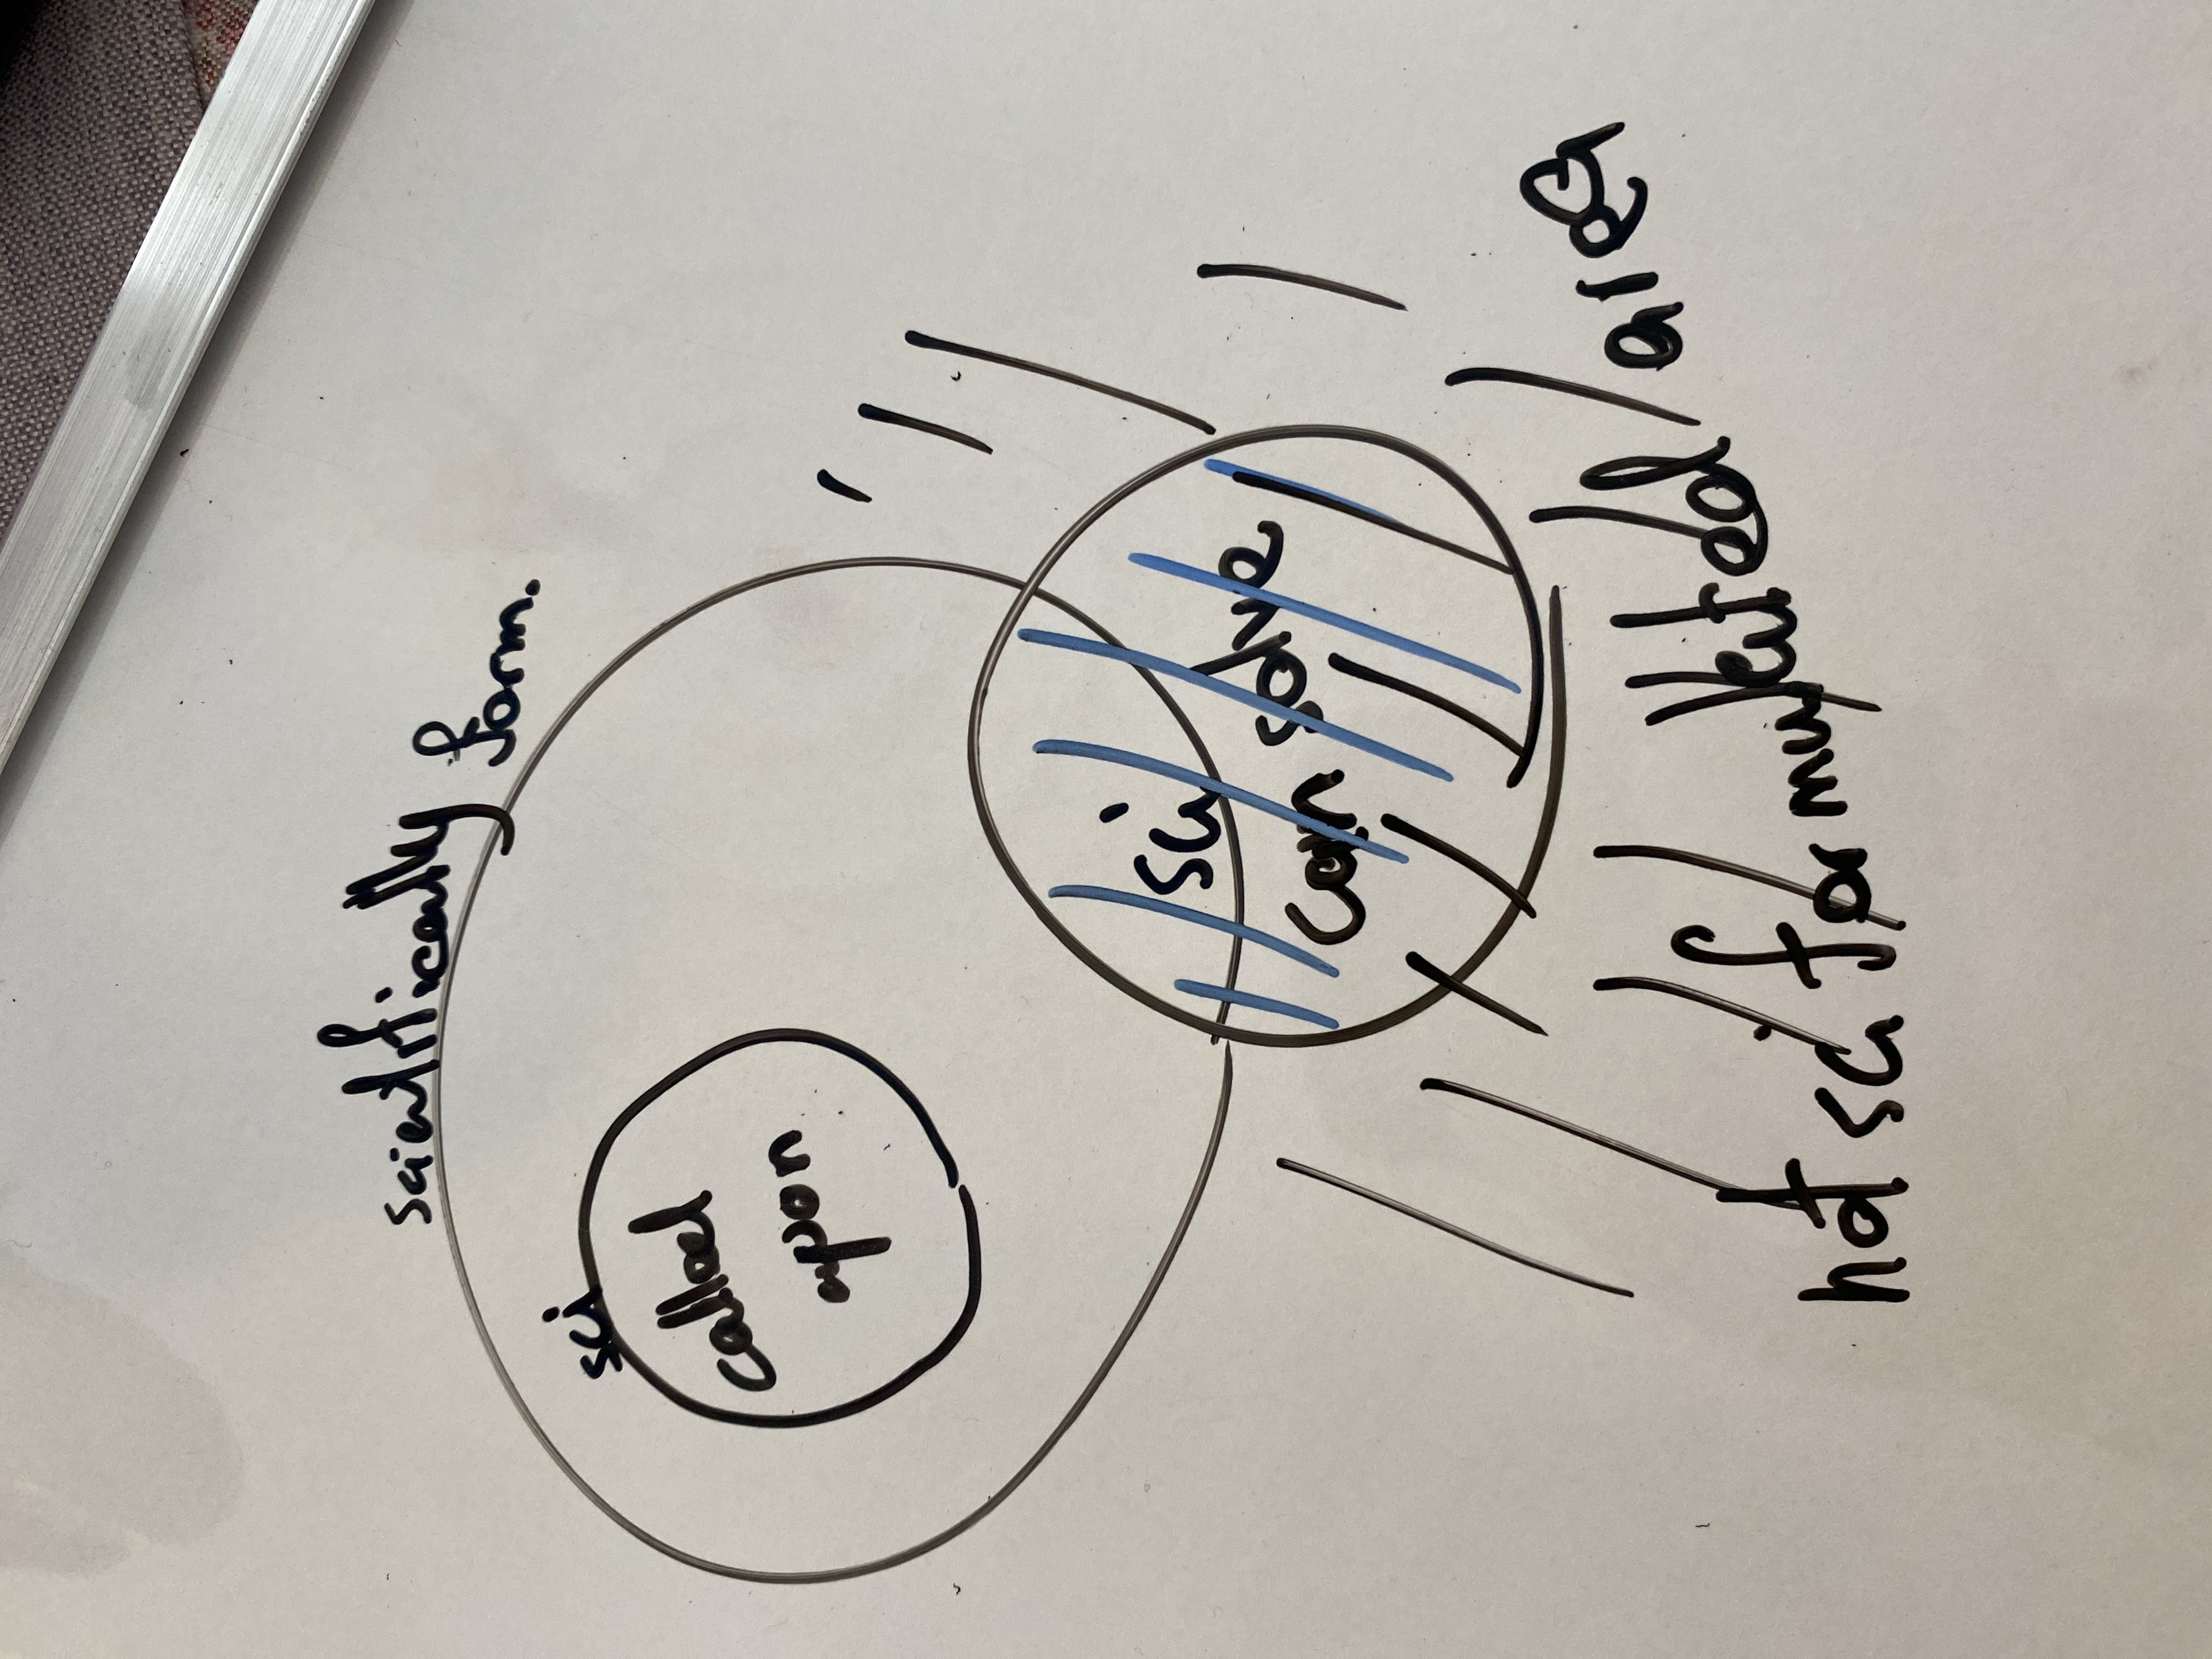 scientifically form.
sci
called
upon
sci
can solve
not sci formulated